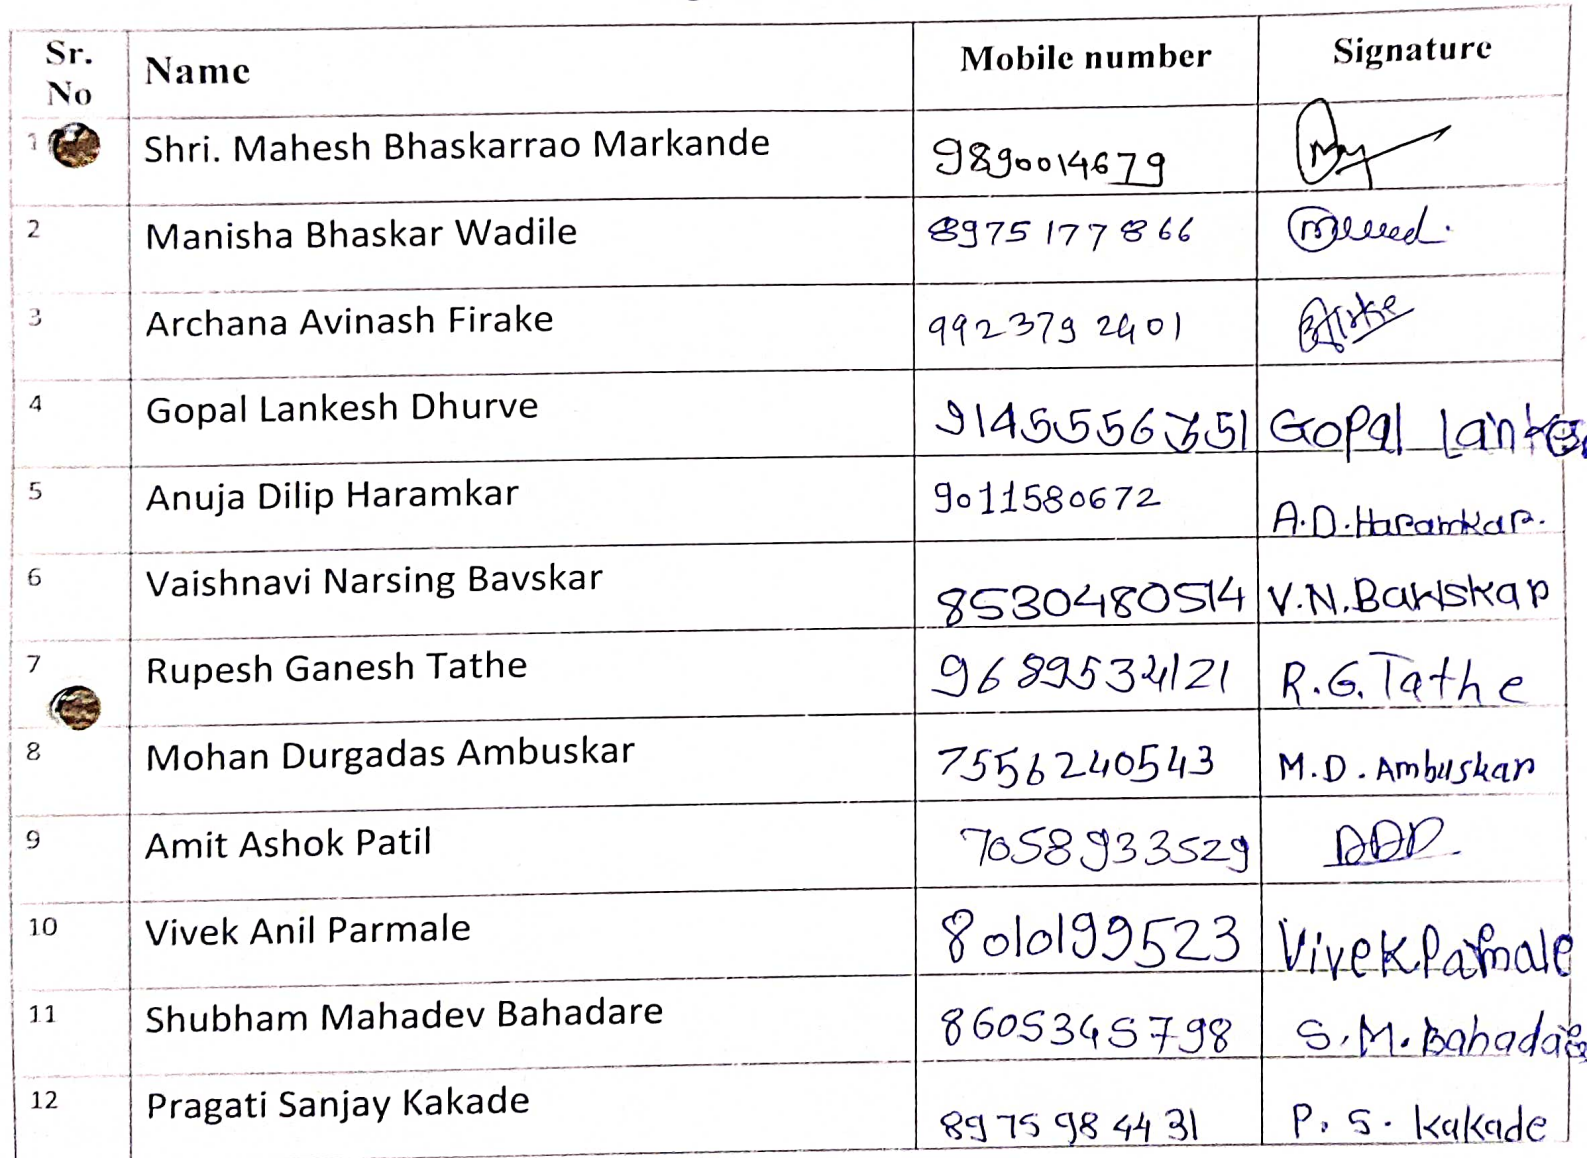 Sr. No Name Mobile number Signature
1 Shri. Mahesh Bhaskarrao Markande 9890014679
2 Manisha Bhaskar Wadile 8975177866
3 Archana Avinash Firake 9923792401
4 Gopal Lankesh Dhurve Gopal
5 Anuja Dilip Haramkar 9011580672 A.D.Haramkar.
6 Vaishnavi Narsing Bavskar 8530480514 V.N.Bawskar
7 Rupesh Ganesh Tathe R.G.Tathe
8 Mohan Durgadas Ambuskar 7556240543 M.D. Ambuskar
9 Amit Ashok Patil 7058933529
10 Vivek Anil Parmale 8010199523 Vivek Parmale
11 Shubham Mahadev Bahadare 8605345798 S.M.
12 Pragati Sanjay Kakade 8975984431 P. S. Kakade